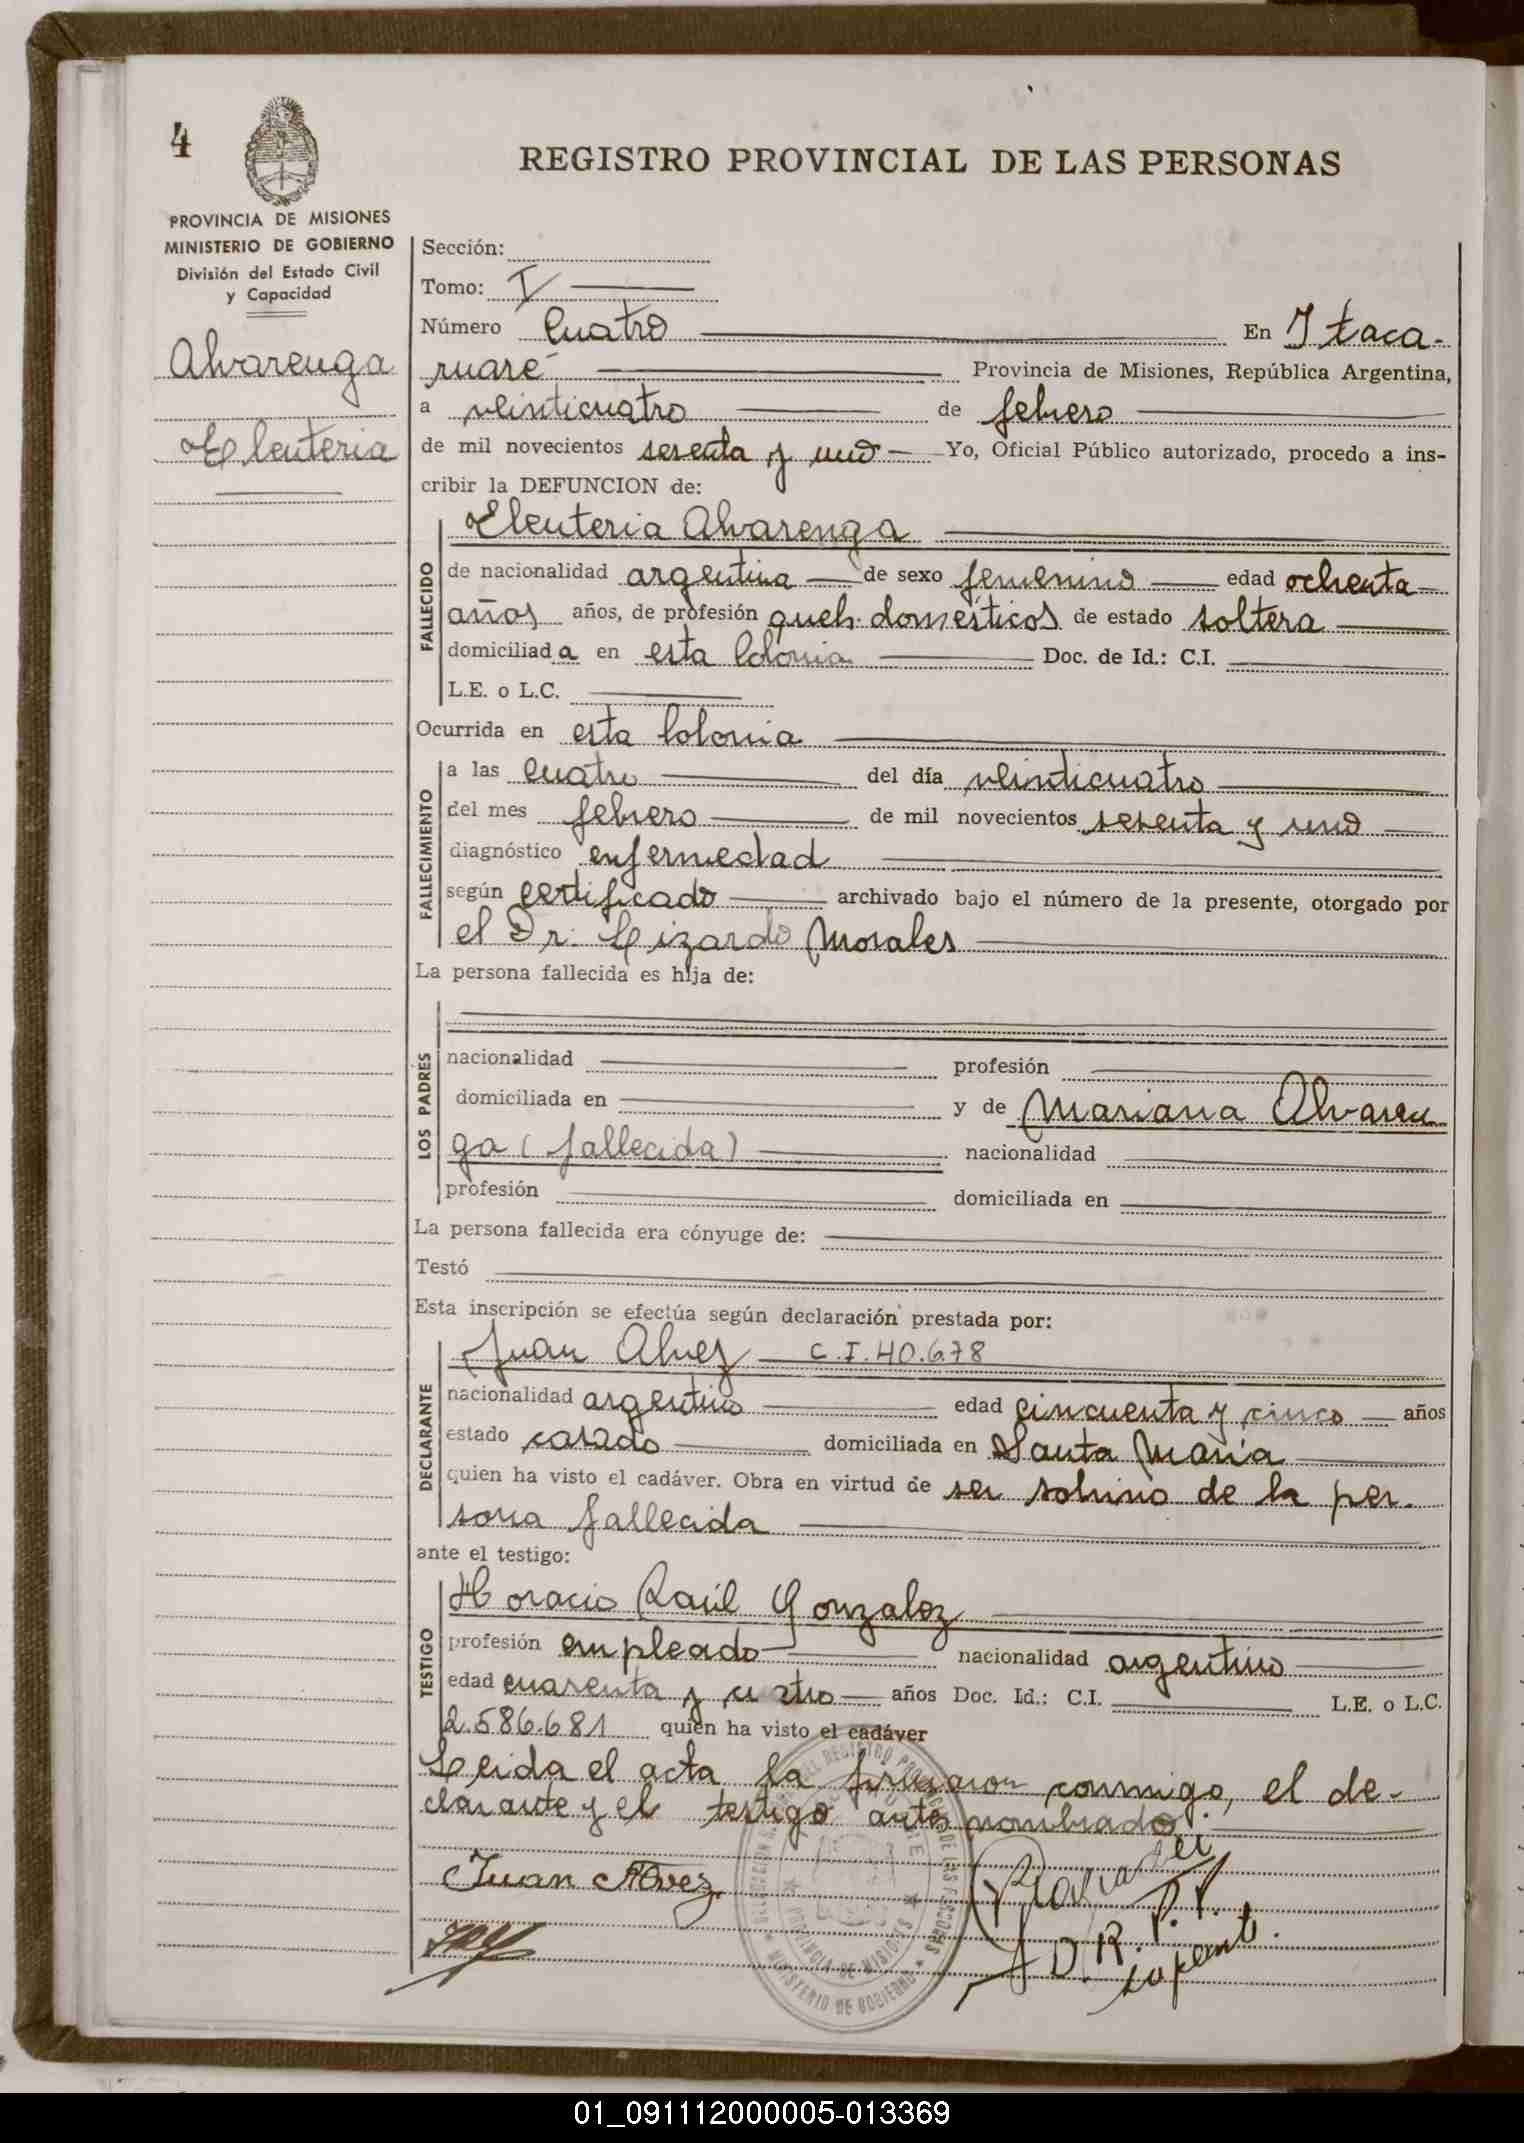 4
REGISTRO PROVINCIAL DE LAS PERSONAS
PROVINCIA DE MISIONES
MINISTERIO DE GOBIERNO
División del Estado Civil
y Capacidad
Alvarenga
Eleuteria
Sección:
Tomo: I
Número Cuatro En Itaca-
ruaré Provincia de Misiones, República Argentina,
a veinticuatro de febrero
de mil novecientos sesenta y uno Yo, Oficial Público autorizado, procedo a ins-
cribir la DEFUNCION de:
FALLECIDO
Eleuteria Alvarenga
de nacionalidad argentina de sexo femenino edad ochenta
años años, de profesión queh. domésticos de estado soltera
domiciliada en esta Colonia Doc. de Id.: C.I.
L.E. o L.C.
Ocurrida en esta Colonia
FALLECIMIENTO
a las cuatro del día veinticuatro
del mes febrero de mil novecientos sesenta y uno
diagnóstico enfermedad
según certificado archivado bajo el número de la presente, otorgado por
el Dr. Lizardo Morales
La persona fallecida es hija de:
LOS PADRES
nacionalidad profesión
domiciliada en y de Mariana Alvaren
ga (fallecida) nacionalidad
profesión domiciliada en
La persona fallecida era cónyuge de:
Testó
Esta inscripción se efectúa según declaración prestada por:
DECLARANTE
Juan Alvez C.I. 40.678
nacionalidad argentino edad cincuenta y cinco años
estado casado domiciliada en Santa María
quien ha visto el cadáver. Obra en virtud de ser sobrino de la per-
sona fallecida
ante el testigo:
TESTIGO
Horacio Raúl Gonzalez
profesión empleado nacionalidad argentino
edad cuarenta y cuatro años Doc. Id.: C.I. L.E. o L.C.
2.586.681 quien ha visto el cadáver
Leida el acta la firmaron conmigo, el de-
clarante y el testigo antes nombrado.
Juan Alvez
D.R.P.P.
MINISTERIO DE GOBIERNO
PROVINCIA DE MISIONES
01_091112000005-013369